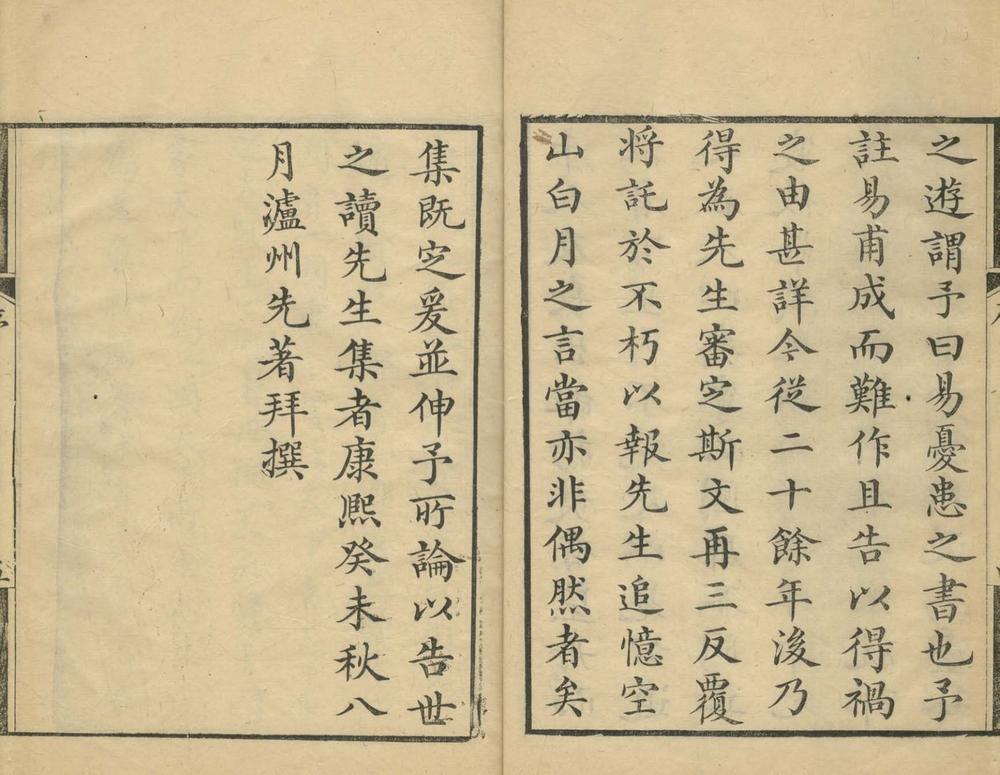 之遊謂予曰易憂患之書也予
註易甫成而難作且告以得禍
之由甚詳今從二十餘年後乃
得為先生審定斯文再三反覆
將託於不朽以報先生追憶空
山白月之言當亦非偶然者矣
集既定爰並伸予所論以告世
之讀先生集者康熙癸未秋八
月瀘州先著拜撰